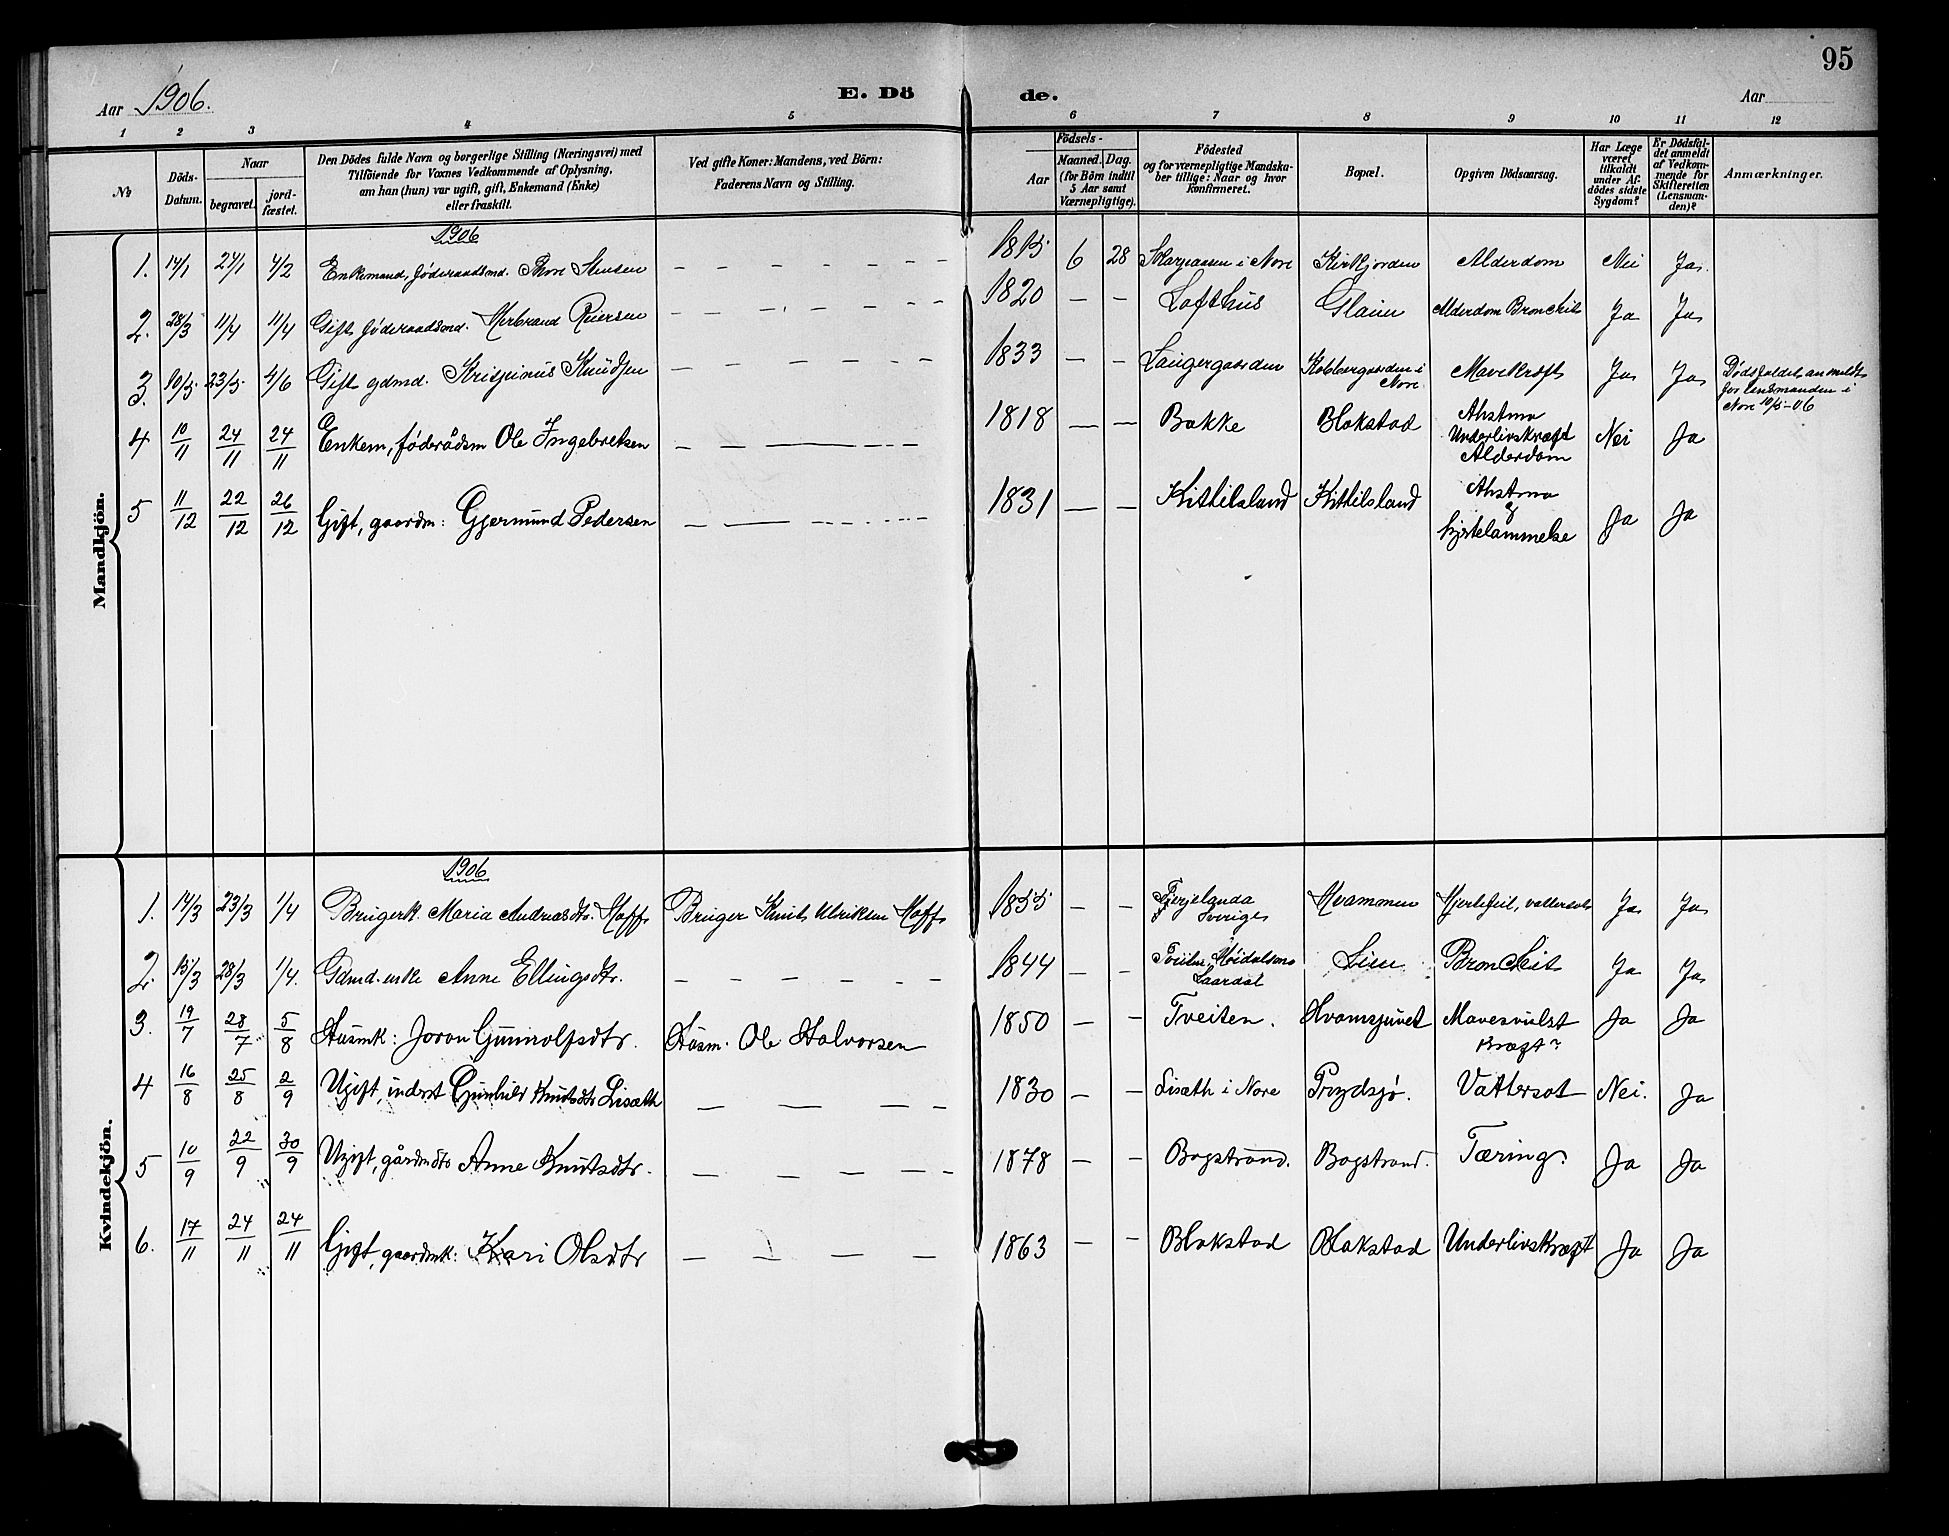 95
Aar 1906. E. Dö de. Aar
1 2 3 4 5 6 7 8 9 10 11 12
No Döds-Datum. Naar begravet. jord-fæstet. Den Dödes fulde Navn og borgerlige Stilling (Næringsvei) med Tilföiende for Voxnes Vedkommende af Oplysning, am han (hun) var ugift, gift, Enkemand (Enke) eller fraskilt. Ved gifte Koner: Mandens, ved Börn: Faderens Navn og Stilling. Födsels- Aar Maaned. Dag. (for Börn indtil 5 Aar samt Værnepligtige). Födested og for værnepligtige Mandska-ber tillige: Naar og hvor Konfirmeret. Bopæl. Opgiven Dödsaarsag. Har Læge været tilkaldt under Af-dödes sidste Sygdom? Er Dödsfal-det anmeldt af Vedkom-mende for Skifteretten (Lensman-den)? Anmærkninger.
Mandkjön.
1906
1. 14/1 24/1 4/2 Enkemand, föderaadsmd. Thore Stensen — — — — — — 1815 6 28 i Nore Kirkjorden Alderdom Nei Ja.
2. 28/3 11/4 11/4 Gift föderaadsmd. Herbrand Reiersen — — — — — — 1820 — — Lofthus Glaim Alderdom Bronchit Ja Ja
3. 10/5 23/5 4/6 Gift gdmd. Knudsen — — — — — — 1833 — — Laugergaarden i Nore Mavekræft Ja Ja Dødsfaldet anmeldt for lensmanden i Nore 10/5-06
4 10/11 24/11 24/11 Enkem, föderådsm Ole Ingebretsen — — — — — 1818 — — Bakke Blokstad Ahstma Underlivskræft Alderdom Nei Ja
5 11/12 22/12 26/12 Gift, gaardm: Gjermund Pedersen — — — — — 1831 — — Kittilsland Kittilsland Ahstma & hjertelammelse Ja Ja
Kvindekjön.
1906
1. 14/3 23/3 1/4 Brugerk. Maria Andreasdtr. Hoff Bruger Knut Ulriksen Hoff 1855 — — Fjerjelanda Sverige Hvammen Hjertefeil, vattersot Ja Ja
2. 15/3 28/3 1/4. Gdmd. enke Anne Ellingsdtr. — — — — — — 1844 — — Høidalsmo Laardal Lien Bronchit Ja Ja
3. 19/7 28/7 5/8 Husmk: Joron Gunnolfsdtr. Husm. Ole Halvorsen 1850 — — Tveiten. Hvamsjuvet Mavesvulst kræft? Ja Ja
4 16/8 25/8 2/9 Ugift, inderst Gunhild Knudsdtr Lisæth — — — — 1830 — — Lisæth i Nore Prydsjø. Vattersot Nei. Ja
5 10/9 22/9 30/9 Ugift, gårdmdtr Anne Knutsdtr. — — — — — 1878 — — Bogstrand. Bogstrand. Tæring. Ja Ja
6. 17/11 24/11 24/11 Gift, gaardmk: Kari Olsdtr — — — — 1863 — — Blokstad Blokstad Underlivskræft Ja Ja